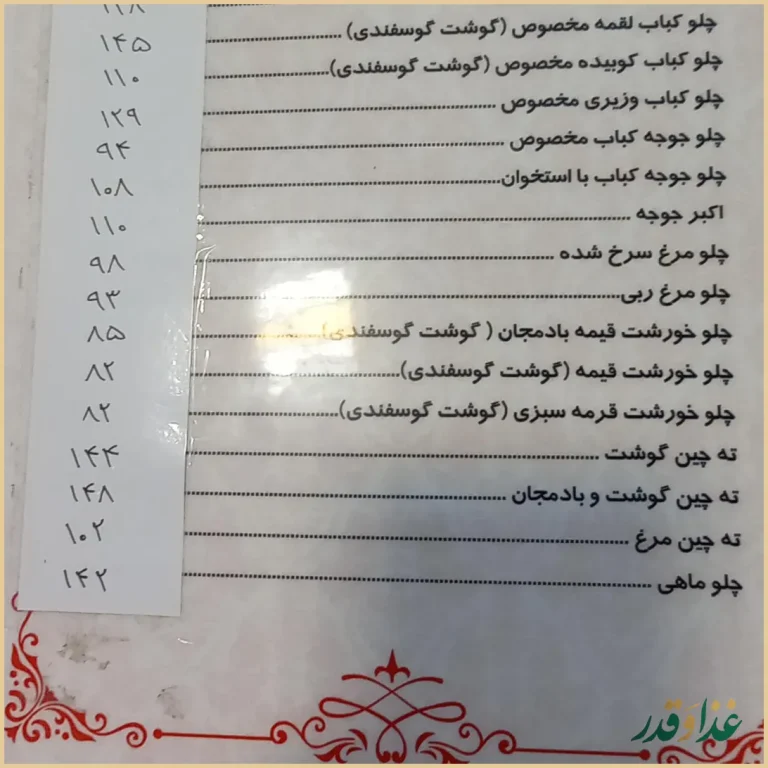 چلو کباب لقمه مخصوص (گوشت گوسفندی) ........ ۱۴۵
چلو کباب کوبیده مخصوص (گوشت گوسفندی) ........ ۱۱۰
چلو کباب وزیری مخصوص ........ ۱۲۹
چلو جوجه کباب مخصوص ........ ۹۴
چلو جوجه کباب با استخوان ........ ۱۰۸
اکبر جوجه ........ ۱۱۰
چلو مرغ سرخ شده ........ ۹۸
چلو مرغ ربی ........ ۹۳
چلو خورشت قیمه بادمجان ( گوشت گوسفندی) ........ ۸۵
چلو خورشت قیمه (گوشت گوسفندی) ........ ۸۲
چلو خورشت قرمه سبزی (گوشت گوسفندی) ........ ۸۲
ته چین گوشت ........ ۱۴۴
ته چین گوشت و بادمجان ........ ۱۴۸
ته چین مرغ ........ ۱۰۲
چلو ماهی ........ ۱۴۲
غذا و قدر